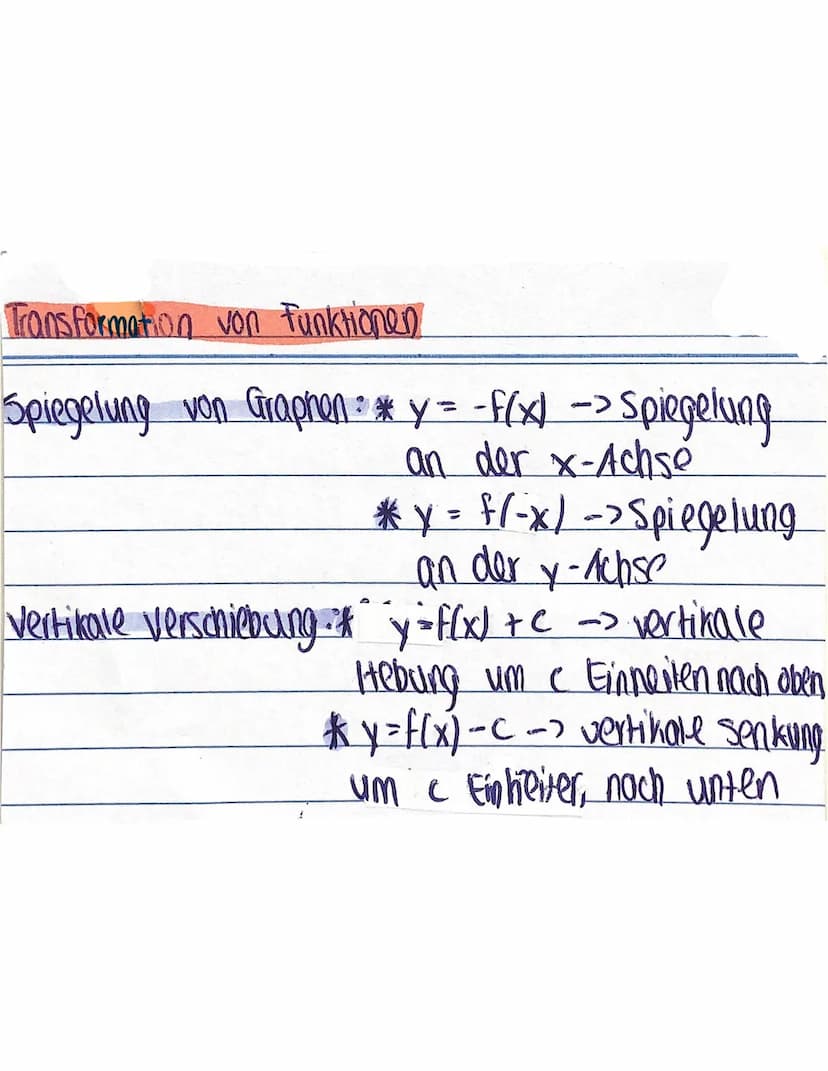 Transformation von Funktionen
Spiegelung von Graphen: * y = -f(x) -> Spiegelung
an der x-Achse
* y = f(-x) -> Spiegelung
an der y-Achse
Vertikale Verschiebung: * y = f(x) + c -> vertikale
Hebung um c Einheiten nach oben
* y = f(x) - c -> vertikale Senkung
um c Einheiten nach unten